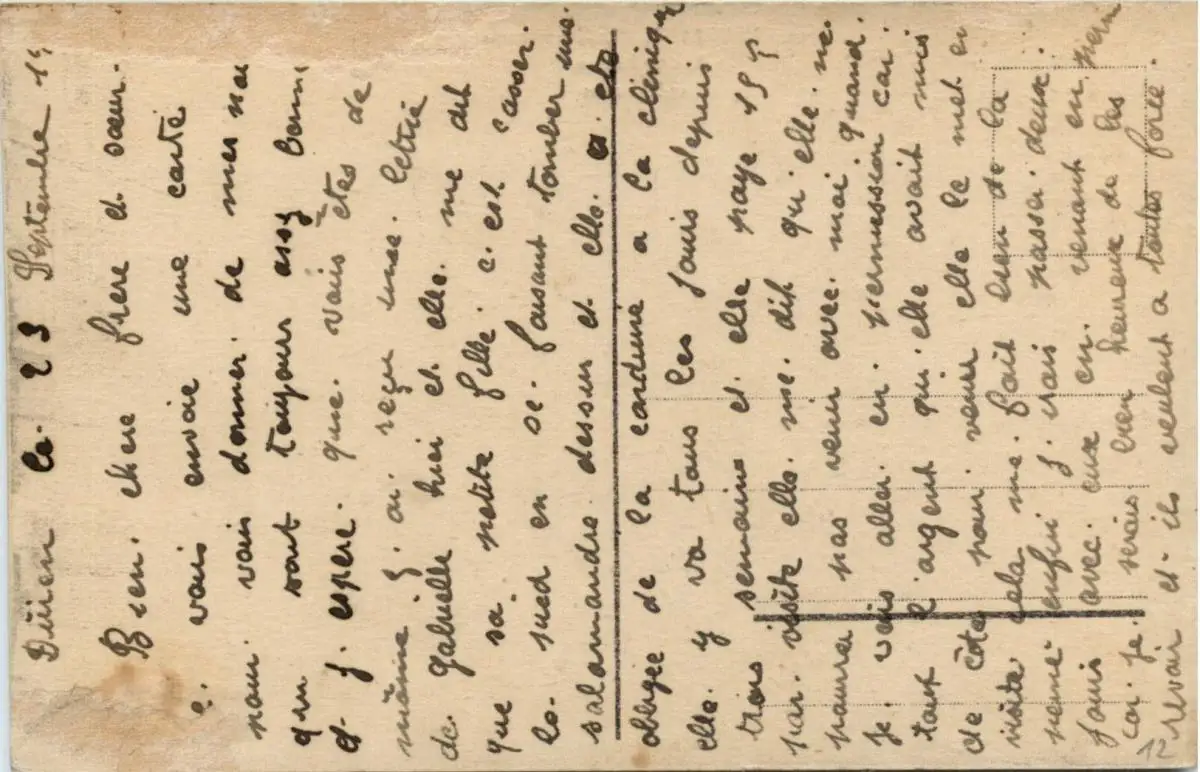 Düren le. 23 Septembre 19
Bien. chere frere et sœur.
e. vais envoie une carte
pour. vais donner. de mes no
qui sont toujours assez bonn
et j. espere. que. vais êtes de
même j. ai. reçu une. lettre
de. Gabrielle hier et elle. me dit
que sa. petite fille. c. est. casser.
le. pied en se. faisant tomber une.
salamandre. dessus et elle. a. ete
obligée de la conduire a la clinique
elle. y va tous les jours depuis
trois semaine et elle paye 15 f
par. visite elle. me. dit qu'elle. ne
pourra pas venir avec. moi quand.
je. vais aller en. permession car.
tout l argent qu. elle avait mis
de côte pour. venir elle le met en
visite cela me. fait bien de la
peine enfin j irais passer deux.
jours avec. eux en. venant en perm
car je. serais bien heureux de les
revoir et. ils veulent a toutes force.
12